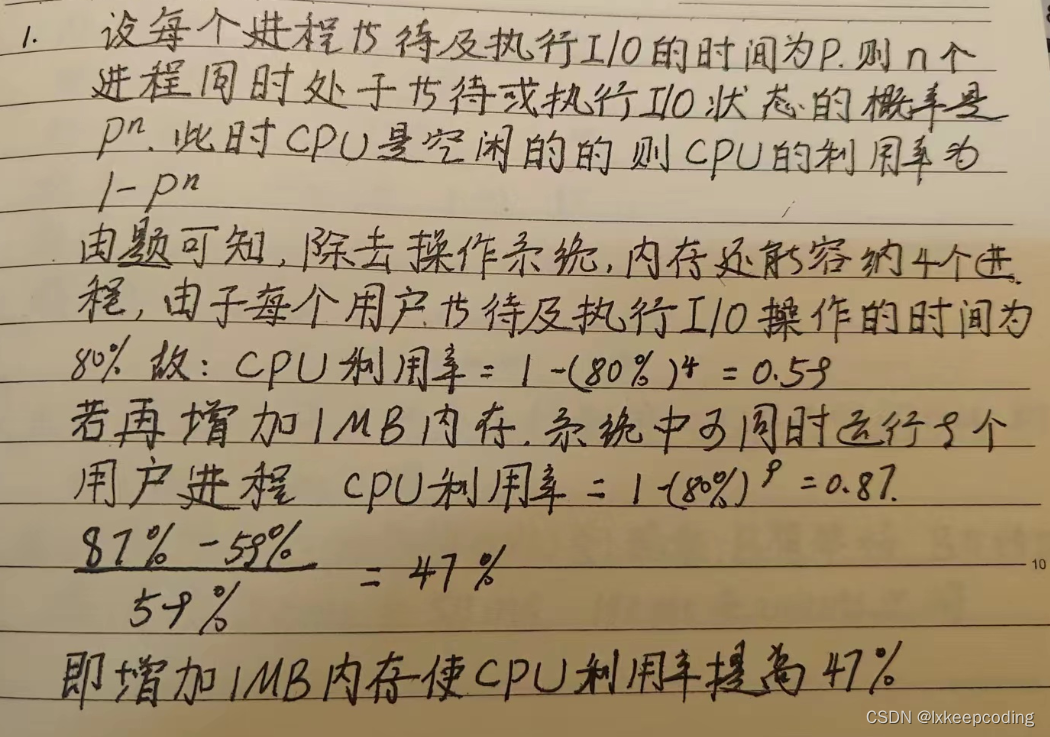 1. 设每个进程等待及执行I/O的时间为P.则n个
进程同时处于等待或执行I/O状态的概率是
pⁿ.此时CPU是空闲的的则CPU的利用率为
1-pⁿ
由题可知,除去操作系统,内存还能容纳4个进
程,由于每个用户等待及执行I/O操作的时间为
80% 故:CPU利用率=1-(80%)⁴=0.59
若再增加1MB内存.系统中可同时运行9个
用户进程 CPU利用率=1-(80%)⁹=0.87.
87%-59%
= 47%
59%
10
即增加1MB内存使CPU利用率提高47%
CSDN @lxkeepcoding